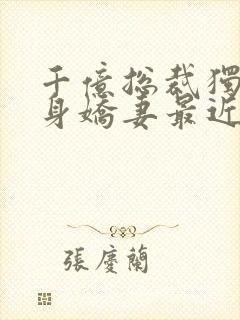 千億总裁獨
身嬌妻最近
張慶蘭